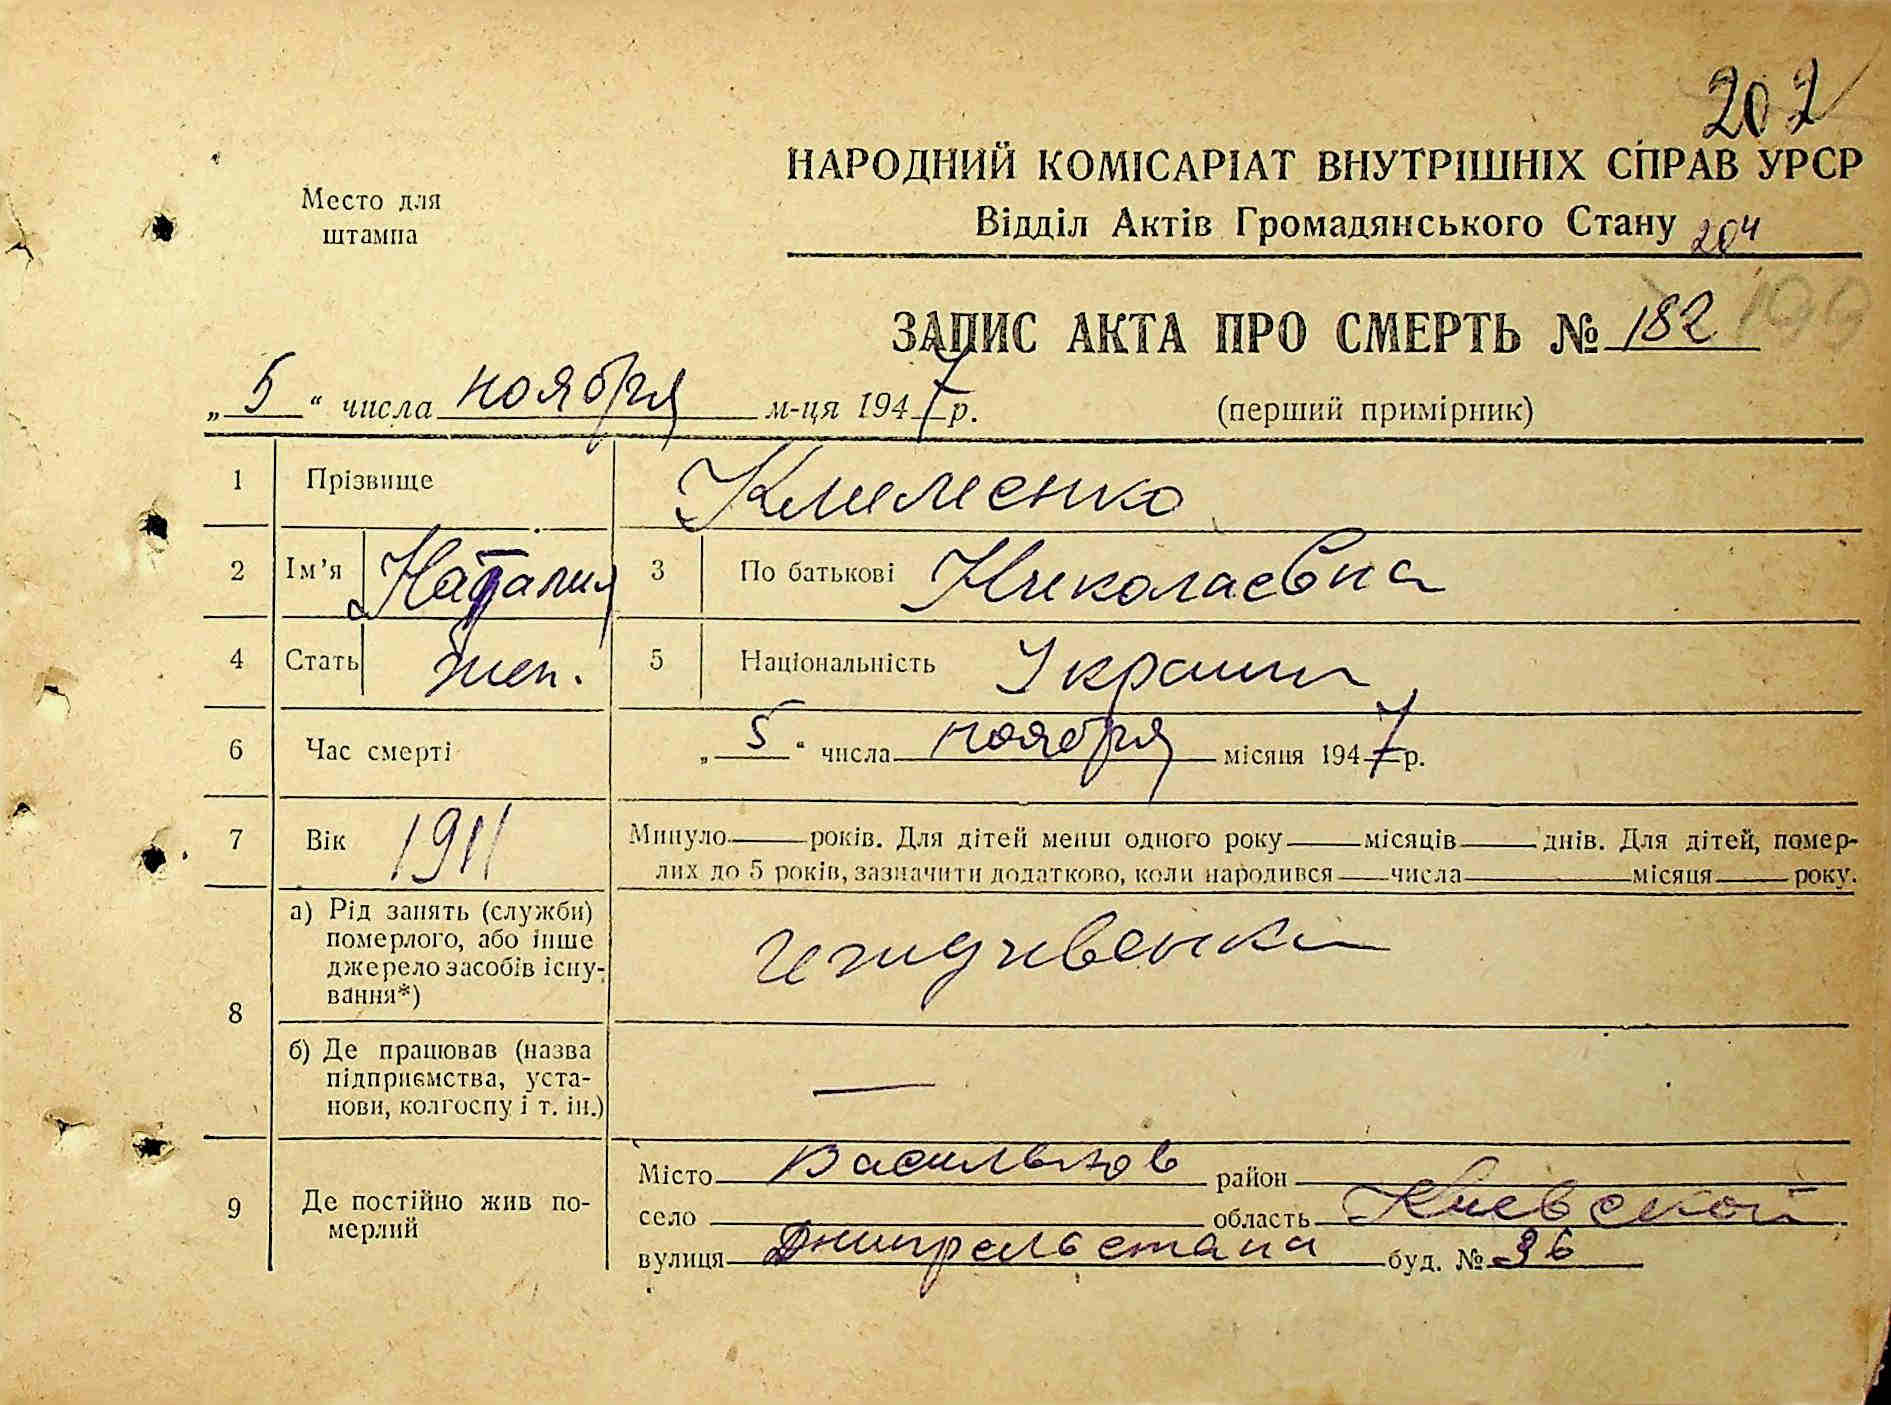 202
НАРОДНИЙ КОМІСАРІАТ ВНУТРІШНІХ СПРАВ УРСР
Место для
штампа
Відділ Актів Громадянського Стану 204
ЗАПИС АКТА ПРО СМЕРТЬ № 182 199
„5“ числа ноября м-ця 1947 р. (перший примірник)
1 Прізвище Клименко
2 Ім’я Наталия 3 По батькові Николаевна
4 Стать жен. 5 Національність
6 Час смерті „5“ числа ноября місяця 1947 р.
7 Вік 1911 Минуло р

оків. Для дітей менш одного року місяців днів. Для дітей, помер-
лих до 5 років, зазначити додатково, коли народився числа місяця року.
8 а) Рід занять (служби)
померлого, або інше
джерело засобів існу-
вання*)
б) Де працював (назва
підприємства, уста-
нови, колгоспу і т. ін.) —
9 Де постійно жив по-
мерлий
Місто Васильков район
село область Киевской
вулиця буд. № 36